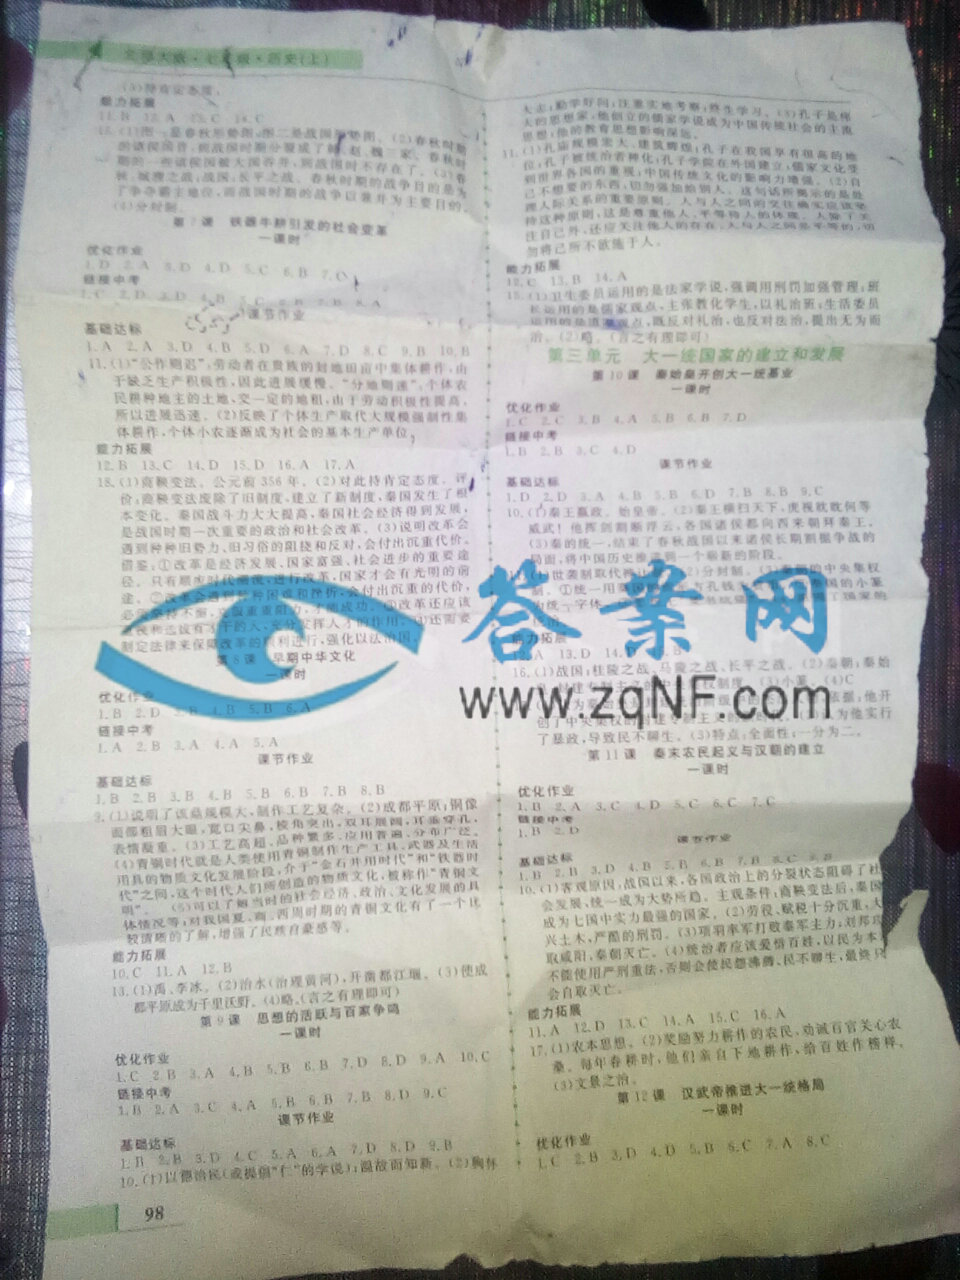 北师大版·七年级·历史(上)
(3)持肯定态度。
能力拓展
11.B 12.A 13.C 14.C
15.(1)图一是春秋形势图,图二是战国形势图。(2)春秋时期
的诸侯国晋,到战国时期分裂成了韩、赵、魏三家。春秋时
期的一些诸侯国被大国吞并,到战国时不存在了。(3)春
秋:城濮之战;战国:长平之战。春秋时期的战争目的是为
了争夺霸主地位,而战国时期的战争以兼并为主要目的。
(4)分封制。
第7课 铁器牛耕引发的社会变革
一课时
优化作业
1.D 2.A 3.D 4.D 5.C 6.B 7.C
链接中考
1.C 2.D 3.D 4.B 5.C 6.B 7.B 8.A
课节作业
基础达标
1.A 2.A 3.D 4.D 5.A 6.A 7.D 8.C 9.B 10.B
11.(1)“公作则迟”:劳动者在贵族的封地田亩中集体耕作,由
于缺乏生产积极性,因此进展缓慢。“分地则速”:个体农
民耕种地主的土地,交一定的地租,由于劳动积极性提高,
所以进展迅速。(2)反映了个体生产取代大规模强制性集
体耕作,个体小农逐渐成为社会的基本生产单位。
能力拓展
12.B 13.C 14.D 15.D 16.A 17.A
18.(1)商鞅变法。公元前356年。(2)对此持肯定态度。评
价:商鞅变法废除了旧制度,建立了新制度,秦国发生了根
本变化。秦国战斗力大大提高,秦国社会经济得到发展,
是战国时期一次重要的政治和社会改革。(3)说明改革会
遇到种种旧势力、旧习俗的阻挠和反对,会付出沉重代价。
借鉴:①改革是经济发展、国家富强、社会进步的重要途
径。只有顺应时代潮流,进行改革,国家才会有光明的前
途。②改革会遇到种种困难和挫折,会付出沉重的代价,
必须坚持不懈,克服重重阻力,才能成功。③改革还应该
重视和选拔有才干的人,充分发挥人才的作用。④还需要
制定法律来保障改革的顺利进行,强化以法治国。
第8课 早期中华文化
一课时
优化作业
1.B 2.D 3.B 4.B 5.B 6.A
链接中考
1.A 2.B 3.A 4.A 5.A
课节作业
基础达标
1.B 2.B 3.B 4.B 5.B 6.B 7.B 8.B
9.(1)说明了该鼎规模大,制作工艺复杂。(2)成都平原;铜像
面部粗眉大眼,宽口尖鼻,棱角突出,双耳展阔,耳垂穿孔,
表情凝重。(3)工艺高超,品种繁多,应用普遍,分布广泛。
(4)青铜时代就是人类使用青铜制作生产工具、武器及生活
用具的物质文化发展阶段,介于“金石并用时代”和“铁器时
代”之间,这个时代人们所创造的物质文化,被称作“青铜文
明”。(5)可以了解当时的社会经济、政治、文化发展的具
体情况等;对我国夏、商、西周时期的青铜文化有了一个比
较清晰的了解,增强了民族自豪感等。
能力拓展
10.C 11.A 12.B
13.(1)禹、李冰。(2)治水(治理黄河),开凿都江堰。(3)使成
都平原成为千里沃野。(4)略。(言之有理即可)
第9课 思想的活跃与百家争鸣
一课时
优化作业
1.C 2.B 3.A 4.B 5.B 6.B 7.D 8.D 9.A 10.C
链接中考
1.B 2.A 3.C 4.A 5.B 6.B 7.B 8.D 9.C
课节作业
基础达标
1.B 2.B 3.D 4.C 5.A 6.A 7.D 8.D 9.B
10.(1)以德治民(或提倡“仁”的学说);温故而知新。(2)胸怀
98
大志;勤学好问;注重实地考察;终生学习。(3)孔子是伟
大的思想家,他创立的儒家学说成为中国传统社会的主流
思想;他的教育思想影响深远。
11.(1)孔庙规模宏大、建筑辉煌;孔子在我国享有很高的地
位;孔子被统治者神化;孔子学院在外国建立;儒家文化受
到世界各国的重视;中国传统文化的影响力增强。(2)自
己不想要的东西,切勿强加给别人。这句话所揭示的是处
理人际关系的重要原则。人与人之间的交往确实应该坚
持这种原则,这是尊重他人,平等待人的体现。人除了关
注自己外,还应关注他人的存在,人与人之间是平等的,切
勿将己所不欲施于人。
能力拓展
12.C 13.B 14.A
15.(1)卫生委员运用的是法家学说,强调用刑罚加强管理;班
长运用的是儒家观点,主张教化学生,以礼治班;生活委员
运用的是道家观点,既反对礼治,也反对法治,提出无为而
治。(2)略。(言之有理即可)
第三单元 大一统国家的建立和发展
第10课 秦始皇开创大一统基业
一课时
优化作业
1.C 2.C 3.B 4.A 5.B 6.B 7.D
链接中考
1.B 2.B 3.C 4.D
课节作业
基础达标
1.D 2.D 3.A 4.B 5.B 6.D 7.B 8.B 9.C
10.(1)秦王嬴政。始皇帝。(2)秦王横扫天下,虎视眈眈何等
威武!他挥剑割断浮云,各国诸侯都向西来朝拜秦王。
(3)秦的统一,结束了春秋战国以来诸侯长期割据争战的
局面,将中国历史推进到一个崭新的阶段。
能力拓展
16.(1)战国:桂陵之战、马陵之战、长平之战。(2)秦朝;秦始
(3)小篆。(4)C
了暴政,导致民不聊生。(3)特点:全面性;一分为二。
第11课 秦末农民起义与汉朝的建立
一课时
优化作业
1.B 2.A 3.C 4.D 5.C 6.C 7.C
链接中考
1.B 2.D
课节作业
基础达标
1.B 2.B 3.D 4.B 5.B 6.B 7.B 8.C 9.B
10.(1)客观原因:战国以来,各国政治上的分裂状态阻碍了社
会发展,统一成为大势所趋。主观条件:商鞅变法后,秦国
成为七国中实力最强的国家。(2)劳役、赋税十分沉重;大
兴土木,严酷的刑罚。(3)项羽率军打败秦军主力;刘邦攻
取咸阳,秦朝灭亡。(4)统治者应该爱惜百姓,以民为本,
不能使用严刑重法,否则会使民怨沸腾、民不聊生,最终只
会自取灭亡。
能力拓展
11.A 12.D 13.C 14.A 15.C 16.A
17.(1)农本思想。(2)奖励努力耕作的农民,劝诫百官关心农
桑。每年春耕时,他们亲自下地耕作,给百姓作榜样。
(3)文景之治。
第12课 汉武帝推进大一统格局
一课时
优化作业
1.C 2.B 3.D 4.D 5.B 6.C 7.A 8.C
答案网
www.zqNF.com